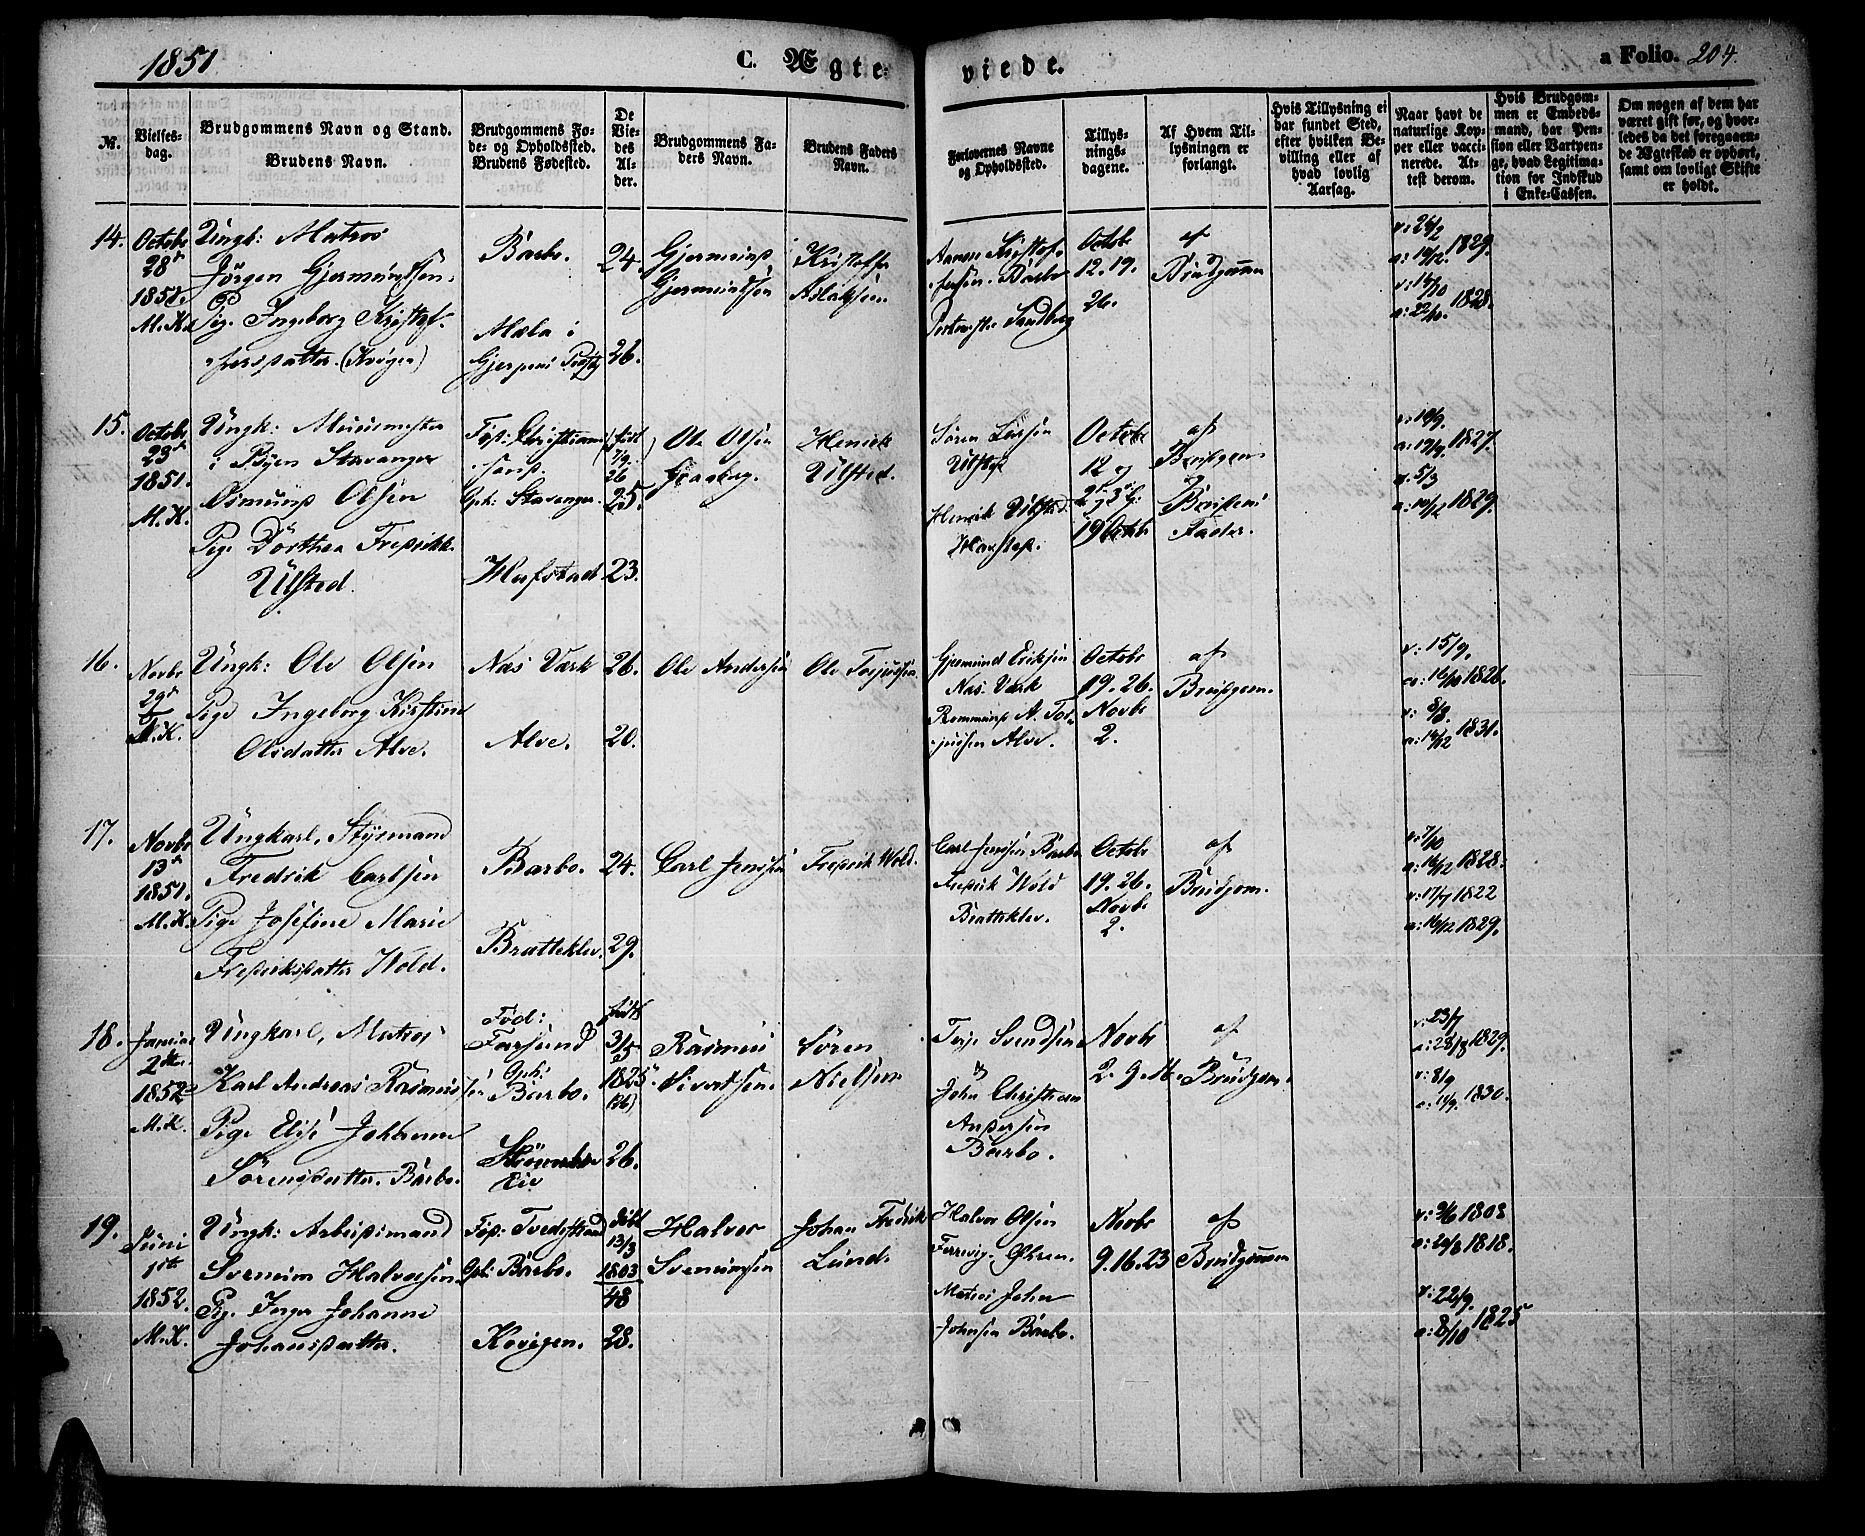 1851
C. Ægte-
viede.
a Folio. 204.
№.
Vielses-
dag.
Brudgommens Navn og Stand.
Brudens Navn.
Brudgommens Fø-
de- og Opholdssted.
Brudens Fødested.
De
Vie-
des
Al-
der.
Brudgommens Fa-
ders Navn.
Brudens Faders
Navn.
Forlovernes Navne
og Opholdssted.
Tillys-
nings-
dagene.
Af Hvem Til-
lysningen er
forlangt.
Hvis Tillysning ei
har fundet Sted,
efter hvilken Be-
villing eller af
hvad lovlig
Aarsag.
Naar havt de
naturlige Kop-
per eller vacci-
nerede. At-
test derom.
Hvis Brudgom-
men er Embeds-
mand, har Pen-
sion eller Vartpen-
ge, hvad Legitima-
tion for Indskud
i Enke-Cassen.
Om nogen af dem har
været gift før, og hvor-
ledes da det foregaaen-
de Ægteskab er ophørt,
samt om lovligt Skifte
er holdt.
14.
Octobr
28de
1851.
M.K.
Ungk: Matros
Jörgen Gjermundsen.
Pige Ingeborg Kristof-
fersdatter. (Krøgen)
Barbo.
Mæla i
Gjerpens
24.
26.
Gjermund
Gjermundsen
Kristoffer
Aslaksen
Barbo
Sandberg
Octobr
12. 19.
26.
af
Brudgommen
v: 26/2
a: 19/12 1829.
v: 14/10
a: 22/10 1828.
15.
Octobr
23de
1851.
M.K.
Ungk: Muurmester
i Byen Stavanger
Osmund Olsen
Pige Dörthea Fredrikke
Ulsted.
Fød: Christian-
sand.
Oph: Stavanger.
Hafstad
født
7/9
26
25.
23.
Ole Olsen
Henrik
Ulsted.
Sören
Ulsted
Henrik Ulsted
Hafsted.
Octobr
12 og
2den og 3die G:
19 Octobr
af
Brudgom.
og
Brudens
Fader.
v: 10/9.
a: 19/9 1827.
v: 5/3
a: 10/12 1829.
16.
Novbr
29de
M.K.
Ungk: Ole Olsen
Pige Ingeborg Kirstine
Olsdatter Alve.
Nas Værk
Alve.
26.
20.
Ole Andersen
Ole Torjussen
Gjermund Eriksen
Nas Værk
Rommund A. Tor-
jussen Alve.
Octobr
19. 26.
Novbr
2.
af
Brudgom.
v: 15/9.
a: 16/10 1826.
v: 8/8.
a: 14/12 1831.
17.
Novbr
13de
1851.
M.K.
Ungkarl, Styrmand
Fredrik Carlsen
Pige Josefine Marie
Fredriksdatter Wold.
Barbo.
Bratteklev.
24.
29.
Carl Jenssen
Fredrik Wold.
Carl Jenssen Barbo
Fredrik Wold
Bratteklev.
Octobr
19. 26.
Novbr
2.
af
Brudgom.
v: 7/10
a: 16/12 1828.
v: 17/7 1822
a: 16/12 1829.
18.
Januar
2den
1852
M.K.
Ungkarl, Matros
Karl Andreas Rasmussen
Pige Elise Johanne
Sörensdatter, Barbo.
Fød:
Farsund
Oph:
Barbo.
født
3/5
1825.
(26)
26.
Rasmus
Sivertsen.
Sören
Nielsen
Terje Svendsen
og
John Christian
Andersen
Barbo.
Novbr
2. 9. 16.
af
Brudgom.
v: 23/7
a: 28/8 1829.
v: 8/9
a: 14/9. 1830.
19.
Juni
1ste
1852.
M.K.
Ungk: Arbeidsmand
Svenum Halvorsen
Pig. Inger Johanne
Johansdatter.
Fød: Tvedestrand
Oph: Barbo.
Krøgen.
født
13/3
1803
48
28.
Halvor
Svenumsen
Johan Fredrik
Lund.
Halvor Olsen
Matros John
Johnsen Barbo.
Novbr
9. 16. 23
af
Brudgommen
v: 3/6 1808
a: 24/8 1818.
v: 22/9.
a: 8/10 1825